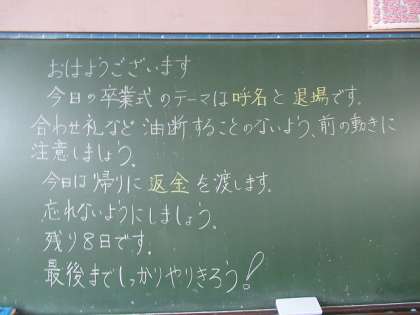 おはようございます
今日の卒業式のテーマは呼名と退場です。
合わせ礼など油断することのないよう、前の動きに
注意しましょう。
今日は帰りに返金を渡します。
忘れないようにしましょう。
残り8日です。
最後までしっかりやりきろう!